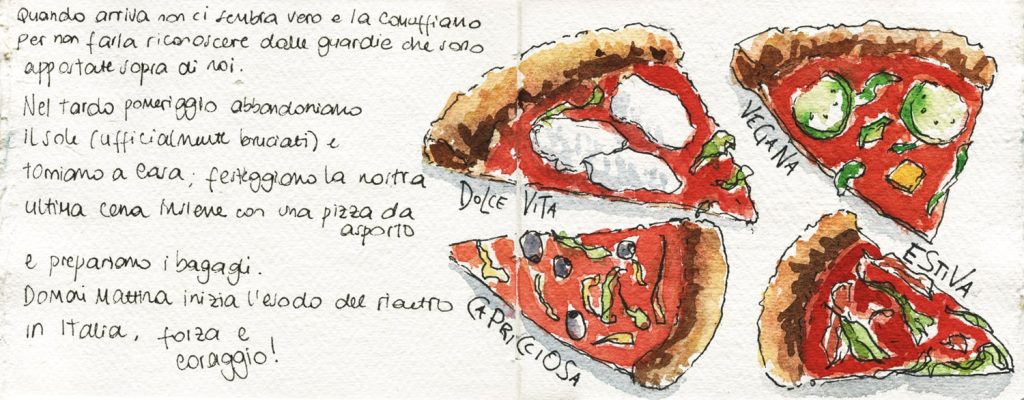 Quando arriva non ci sembra vero e la camuffiamo
per non farla riconoscere dalle guardie che sono
appostate sopra di noi.
Nel tardo pomeriggio abbandoniamo
il sole (ufficialmente bruciati) e
torniamo a casa; festeggiamo la nostra
ultima cena insieme con una pizza da
asporto
e prepariamo i bagagli.
Domani mattina inizia l'esodo del rientro
in Italia, forza e
coraggio!
DOLCE VITA
VEGANA
CAPRICCIOSA
ESTIVA